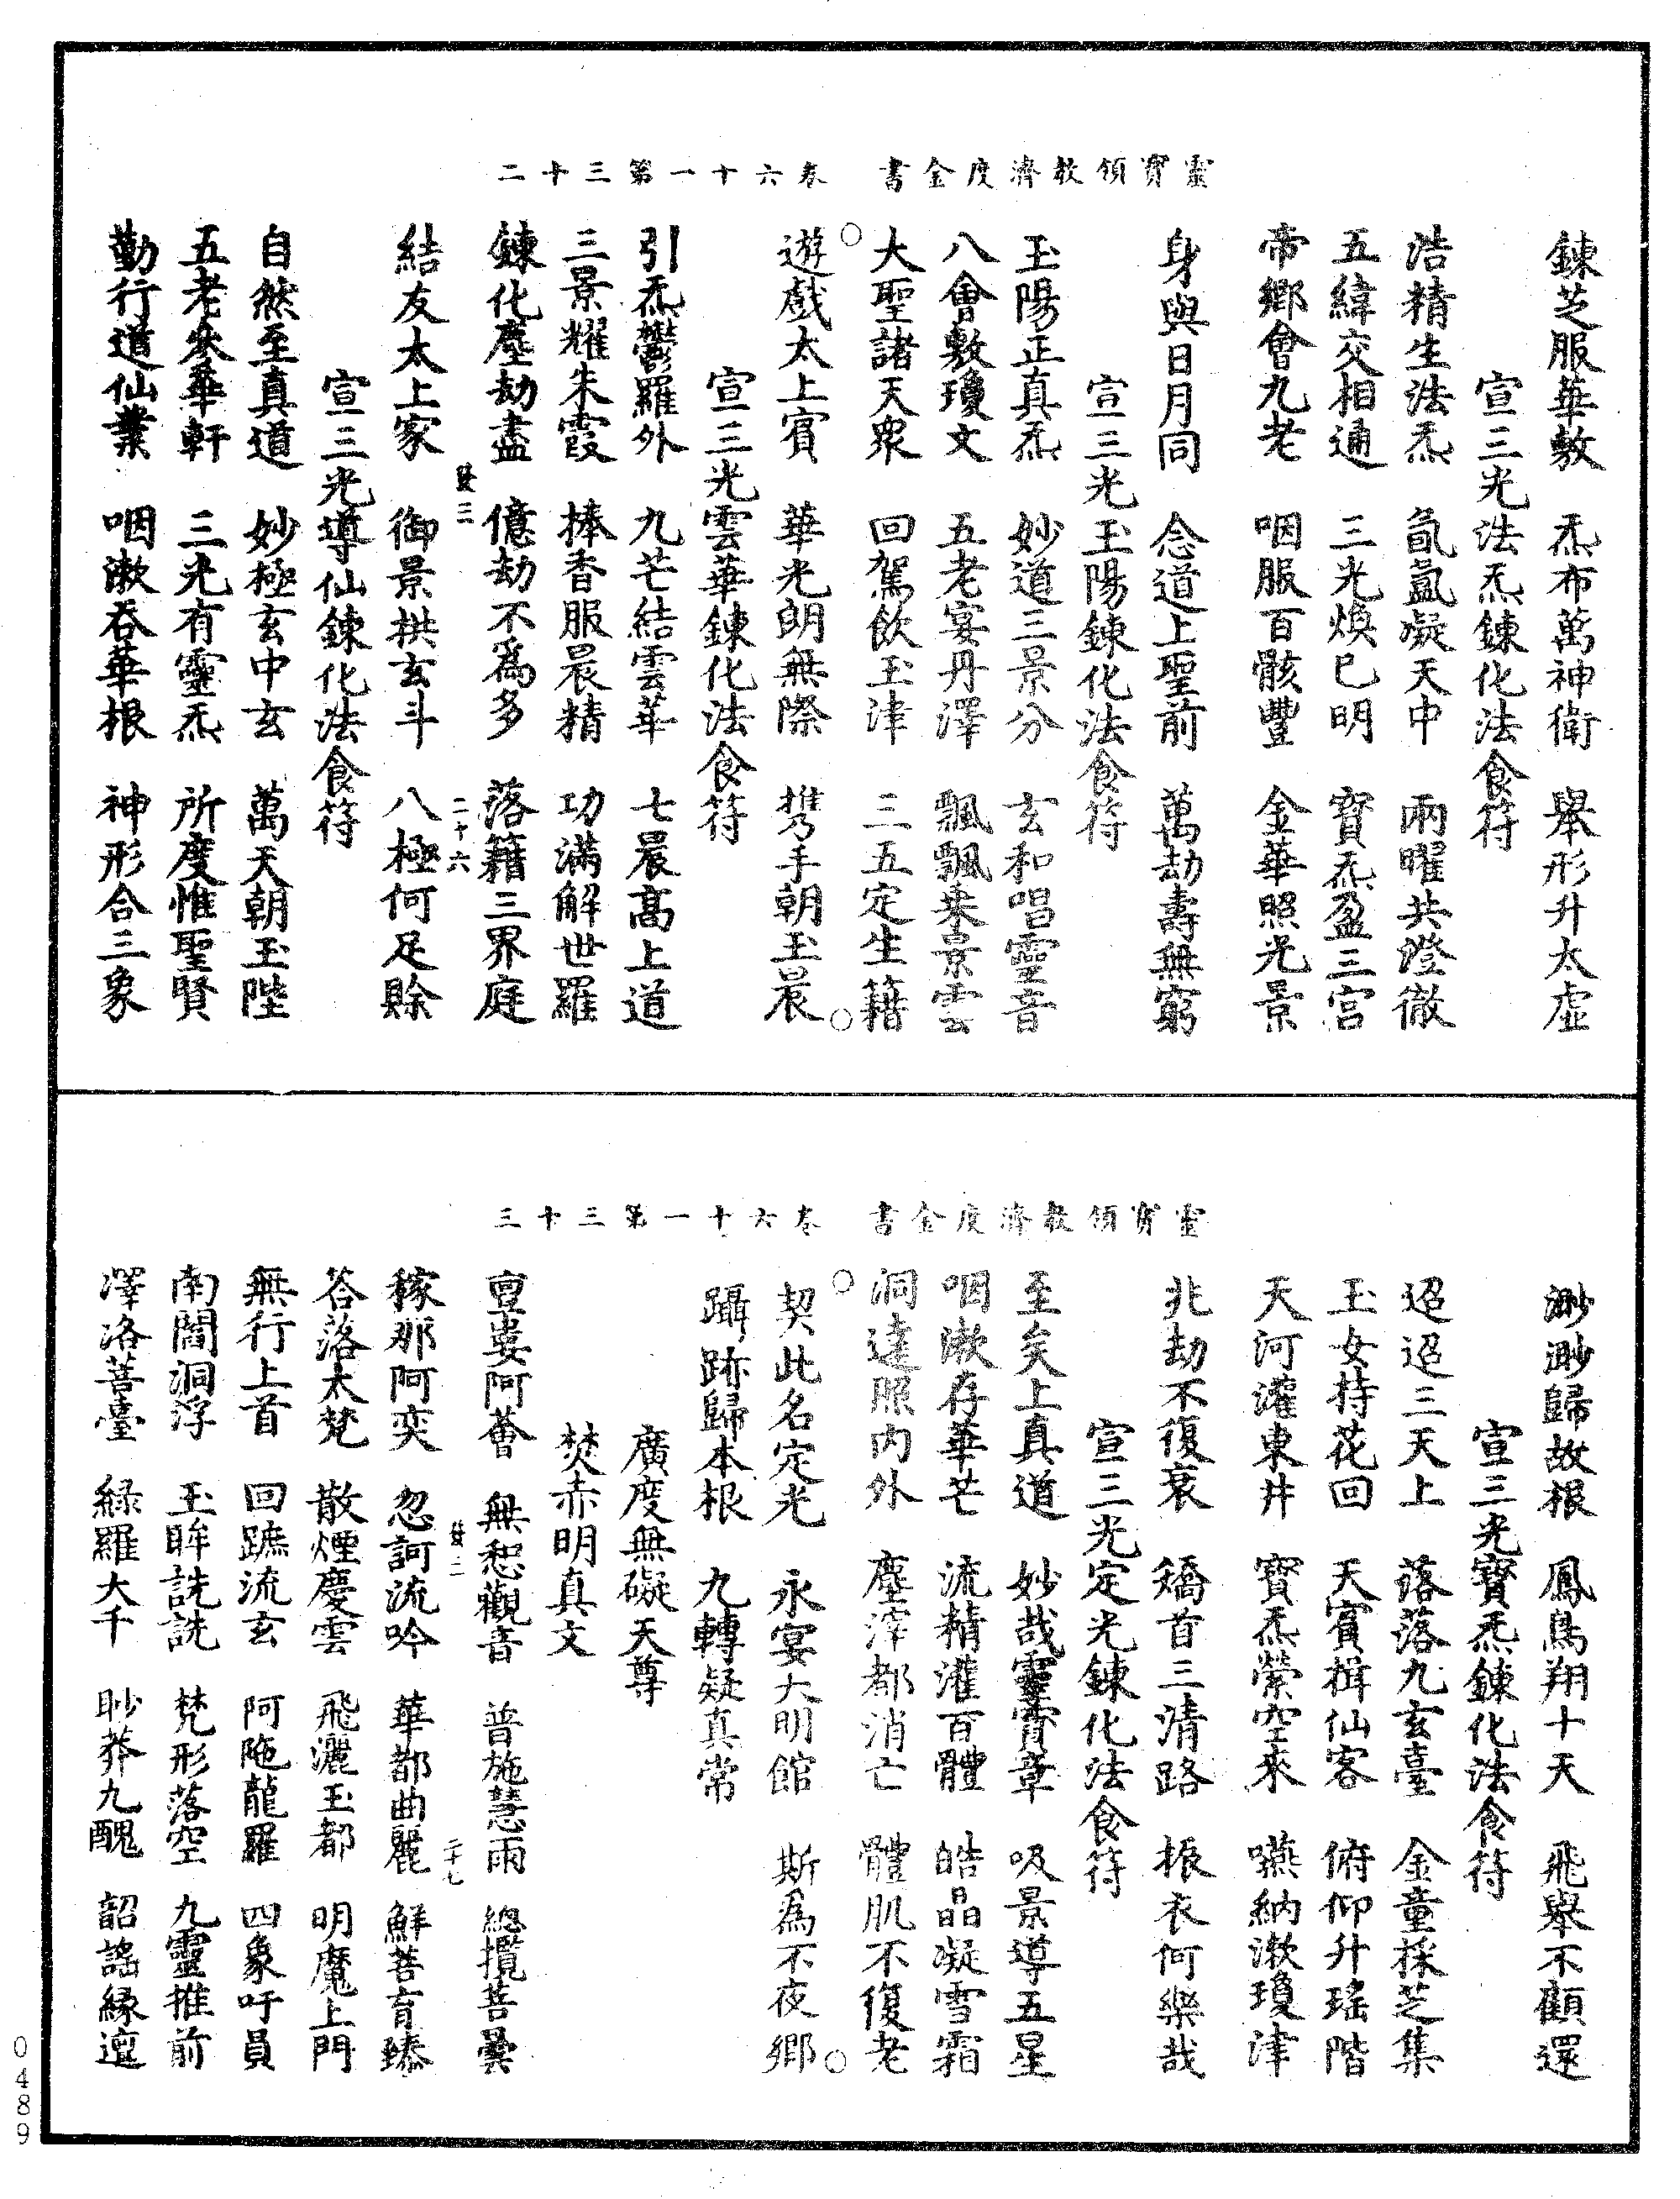 靈寶領教濟度金書　卷六十一第三十二
鍊芝服華敷　炁布萬神衛　舉形升太虛
宣三光法炁鍊化法食符
浩精生法炁　氤氳凝天中　兩曜共澄徹
五緯交相通　三光煥已明　寶炁盈三宮
帝鄉會九老　咽服百骸豐　金華照光景
身與日月同　念道上聖前　萬劫壽無窮
宣三光玉陽鍊化法食符
玉陽正真炁　妙道三景分　玄和唱靈音
八會敷瓊文　五老宴丹澤　飄飄乘景雲
大聖諸天眾　回駕飲玉津　三五定生籍
遊戲太上賓　華光朗無際　攜手朝玉晨
宣三光雲華鍊化法食符
引炁鬱羅外　九芒結雲華　七晨高上道
三景耀朱霞　捧香服晨精　功滿解世羅
鍊化塵劫盡　億劫不為多　落籍三界庭
二十六
結友太上家　御景拱玄斗　八極何足賒
宣三光導仙鍊化法食符
自然至真道　妙極玄中玄　萬天朝玉陛
五老參華軒　三光有靈炁　所度惟聖賢
勤行道仙業　咽漱吞華根　神形合三象
靈寶領教濟度金書　卷六十一第三十三
渺渺歸故根　鳳鳥翔十天　飛舉不顧還
宣三光寶炁鍊化法食符
迢迢三天上　落落九玄臺　金童採芝集
玉女持花回　天賓揖仙客　俯仰升瑤階
天河灌東井　寶炁縈空來　嚥納漱瓊津
兆劫不復衰　矯首三清路　振衣何樂哉
宣三光定光鍊化法食符
至矣上真道　妙哉靈寶章　吸景導五星
咽漱存華芒　流精灌百體　皓晶凝雪霜
洞達照內外　塵滓都消亡　體肌不復老
契此名定光　永宴大明館　斯為不夜鄉
躡跡歸本根　九轉疑真常
廣度無礙天尊
焚赤明真文
亶婁阿薈　無惒觀音　普施慧雨　總攬菩曇
二十七
稼那阿奕　忽訶流吟　華都曲麗　鮮菩育臻
答落大梵　散煙慶雲　飛灑玉都　明魔上門
無行上首　回蹠流玄　阿陁龍羅　四象吁員
南閻洞浮　玉眸詵詵　梵形落空　九靈推前
澤洛菩臺　綠羅大千　眇莽九醜　韶謠緣邅
0489